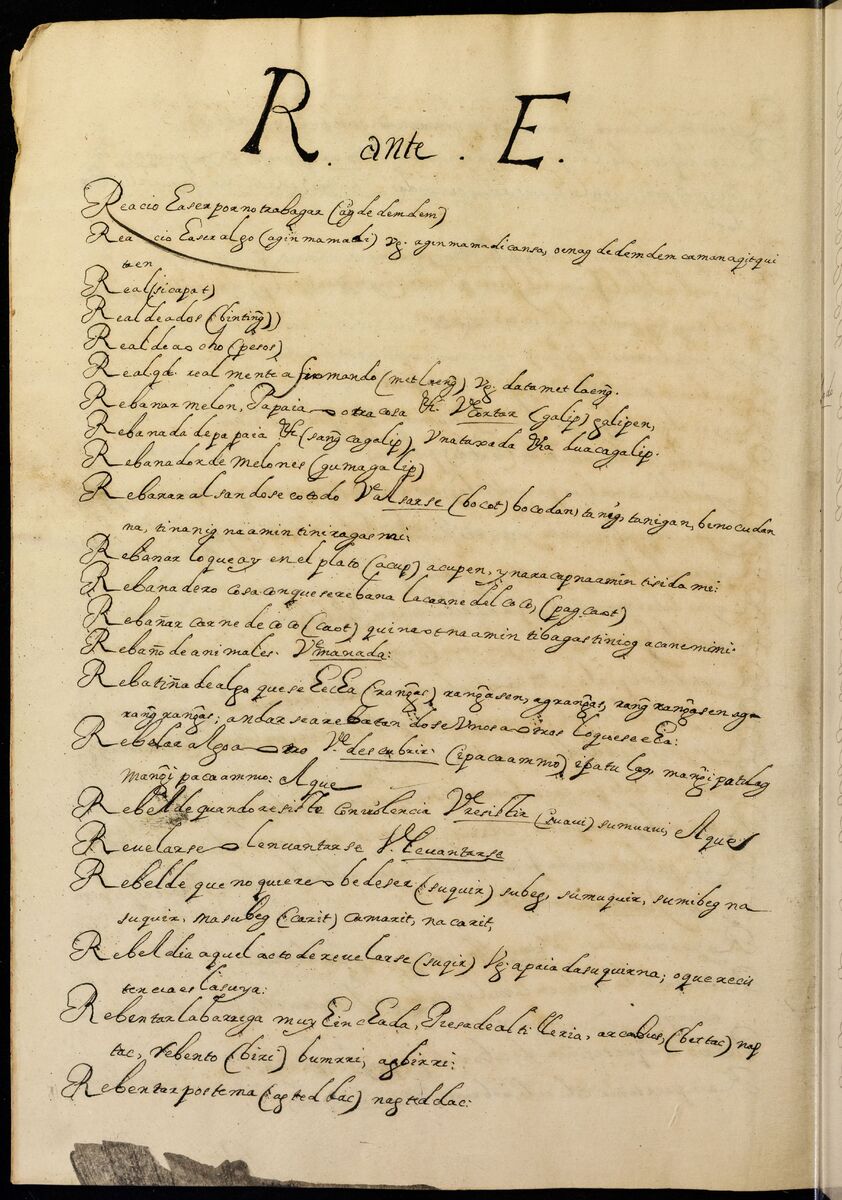 R. ante. E.
Reacio Easer por no trabagar (ag de demdem)
Reacio Easer algo (agin mamadi) Vg. agin mamadi cansa, o enag de demdem ca man agitqui
ta en
Real (sicapat)
Real de a dos (binting))
Real de a ocho (pesos)
Real qde. real mente afirmando Vg. data met laeng.
Rebanar melon, Papaia o otra cosa Ve Cortar (galip) galipen,
Rebanada de papaia (sang cagalip) Vna taxada duacagalip.
Rebanador de Melones (gumagalip)
Rebanar alsandose co todo Ve alsarse (bocot) bocodan, tanig, tanigan, binocudan
na, tinanig na amin tini ragasmi:
Rebanar lo que ay en el plato (acup) acupen, ynaracap na amin ti sida mi:
Rebanadero cosa con que se rebana la carne del coco, (pag caot)
Rebañar carne de coco (caot) quinaot na amin ti bagas ti niog a canemimi.
Rebaño de animales. Ve manada:
Rebatiña de algo que se EcEa (rangas) rangasen, agrangas, rang rangasen ag
rang rangas; andarse arebatandose Vnos a otros lo que se eEa:
Rebelar algo a otro Ve descubrir (ipacaammo) ipatulag, mangipatulag
mangipacaammo: Aque
Rebelde quando resiste con violencia Ve resistir (suavi) sumuavi, Aque
Revelarse o lenvantarse V. Levantarse
Rebelde que no quiere obedeser (suquir) subeg, sumuquir, sumibeg na
suquir, nasubeg (carit) camarit, nacarit,
Rebeldia aquel acto de revelarse (suqir) Vg: apaia dasuquirna; o que recis
tencia es la suya:
Rebentar la baraiga muy Einchada, Piesa de altilleria, arcabus, (bettac) nap
tac, rebento (birri) bumrri, agbirri:
Rebentar postema (agteddac) nagteddac: